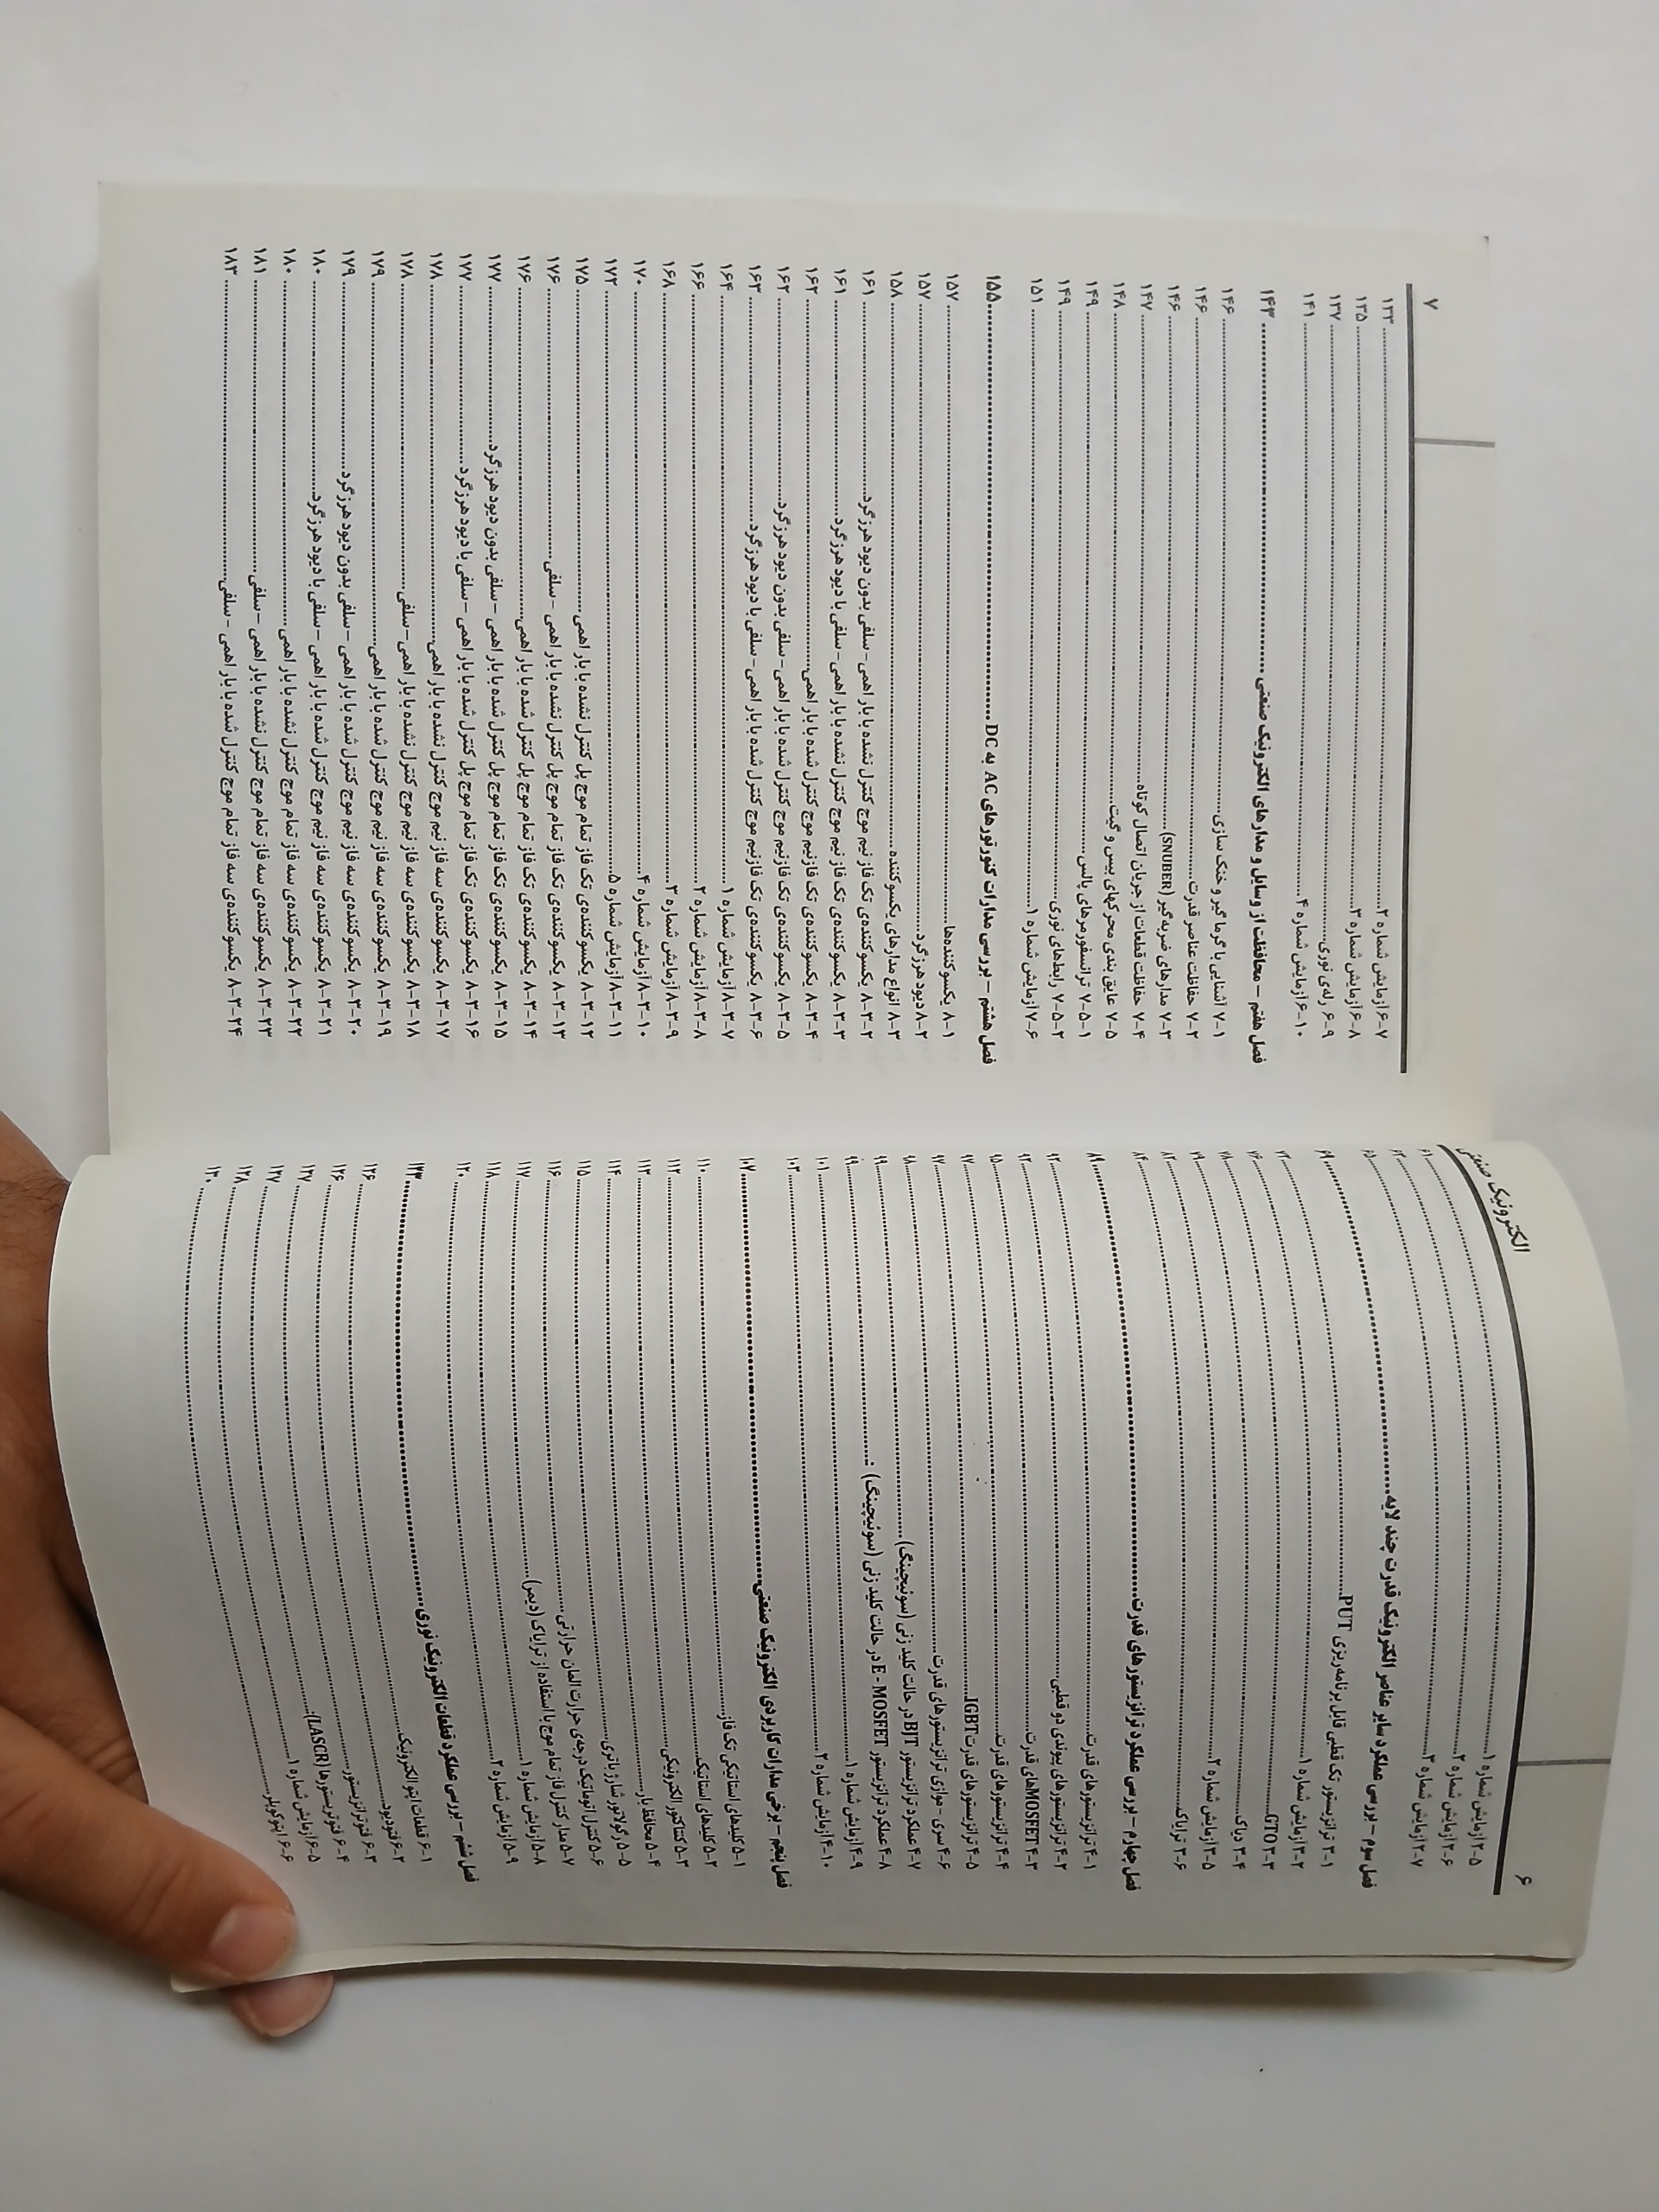 ۶
الکترونیک صنعتی
۲-۵ آزمایش شماره ۱ ........ ۶۱
۲-۶ آزمایش شماره ۲ ........ ۶۳
۲-۷ آزمایش شماره ۳ ........ ۶۵
فصل سوم – بررسی عملکرد سایر عناصر الکترونیک قدرت چند لایه ........ ۶۹
۳-۱ ترانزیستور تک قطبی قابل برنامه‌ریزی PUT ........ ۷۳
۳-۲ آزمایش شماره ۱ ........ ۷۶
۳-۳ GTO ........ ۷۸
۳-۴ دیاک ........ ۷۹
۳-۵ آزمایش شماره ۲ ........ ۸۲
۳-۶ ترایاک ........ ۸۴
فصل چهارم – بررسی عملکرد ترانزیستورهای قدرت ........ ۸۹
۴-۱ ترانزیستورهای قدرت ........ ۹۲
۴-۲ ترانزیستورهای پیوندی دو قطبی ........ ۹۲
۴-۳ MOSFETهای قدرت ........ ۹۵
۴-۴ ترانزیستورهای قدرت ........ ۹۷
۴-۵ ترانزیستورهای قدرت IGBT ........ ۹۷
۴-۶ سری – موازی ترانزیستورهای قدرت ........ ۹۸
۴-۷ عملکرد ترانزیستور BJT در حالت کلید زنی (سوئیچینگ) ........ ۹۹
۴-۸ عملکرد ترانزیستور E- MOSFET در حالت کلید زنی (سوئیچینگ) ........ ۹۹
۴-۹ آزمایش شماره ۱ ........ ۱۰۱
۴-۱۰ آزمایش شماره ۲ ........ ۱۰۳
فصل پنجم – برخی مدارات کاربردی الکترونیک صنعتی ........ ۱۰۷
۵-۱ کلیدهای استاتیکی تک فاز ........ ۱۱۰
۵-۲ کلیدهای استاتیک ........ ۱۱۲
۵-۳ کنتاکتور الکترونیکی ........ ۱۱۳
۵-۴ محافظ بار ........ ۱۱۴
۵-۵ رگولاتور شارژ باتری ........ ۱۱۵
۵-۶ کنترل اتوماتیک درجه‌ی حرارت المان حرارتی ........ ۱۱۶
۵-۷ مدار کنترل فاز تمام موج با استفاده از ترایاک (دیمر) ........ ۱۱۷
۵-۸ آزمایش شماره ۱ ........ ۱۱۸
۵-۹ آزمایش شماره ۲ ........ ۱۲۰
فصل ششم – بررسی عملکرد قطعات الکترونیک نوری ........ ۱۲۳
۶-۱ قطعات اپتو الکترونیک ........ ۱۲۶
۶-۲ فتودیود ........ ۱۲۶
۶-۳ فتوترانزیستور ........ ۱۲۷
۶-۴ فتوتریستورها (LASCR) ........ ۱۲۷
۶-۵ آزمایش شماره ۱ ........ ۱۲۸
۶-۶ اپتوکوپلر ........ ۱۳۰
۷
۶-۷ آزمایش شماره ۲ ........ ۱۳۳
۶-۸ آزمایش شماره ۳ ........ ۱۳۵
۶-۹ رله‌ی نوری ........ ۱۳۷
۶-۱۰ آزمایش شماره ۴ ........ ۱۴۱
فصل هفتم – محافظت از وسایل و مدارهای الکترونیک صنعتی ........ ۱۴۳
۷-۱ آشنایی با گرما گیر و خنک سازی ........ ۱۴۶
۷-۲ حفاظت عناصر قدرت ........ ۱۴۶
۷-۳ مدارهای ضربه‌گیر (SNUBER) ........ ۱۴۶
۷-۴ حفاظت قطعات از جریان اتصال کوتاه ........ ۱۴۷
۷-۵ عایق بندی محرکهای بیس و گیت ........ ۱۴۸
۷-۵-۱ ترانسفورمرهای پالس ........ ۱۴۹
۷-۵-۲ رابط‌های نوری ........ ۱۴۹
۷-۶ آزمایش شماره ۱ ........ ۱۵۱
فصل هشتم – بررسی مدارات کنورتورهای AC به DC ........ ۱۵۵
۸-۱ یکسوکننده‌ها ........ ۱۵۷
۸-۲ دیود هرزگرد ........ ۱۵۷
۸-۳ انواع مدارهای یکسوکننده ........ ۱۵۸
۸-۳-۲ یکسوکننده‌ی تک فاز نیم موج کنترل نشده با بار اهمی – سلفی بدون دیود هرزگرد ........ ۱۶۱
۸-۳-۳ یکسوکننده‌ی تک فاز نیم موج کنترل نشده با بار اهمی – سلفی با دیود هرزگرد ........ ۱۶۱
۸-۳-۴ یکسوکننده‌ی تک فاز نیم موج کنترل شده با بار اهمی ........ ۱۶۲
۸-۳-۵ یکسوکننده‌ی تک فاز نیم موج کنترل شده با بار اهمی – سلفی بدون دیود هرزگرد ........ ۱۶۲
۸-۳-۶ یکسوکننده‌ی تک فاز نیم موج کنترل شده با بار اهمی – سلفی با دیود هرزگرد ........ ۱۶۳
۸-۳-۷ آزمایش شماره ۱ ........ ۱۶۴
۸-۳-۸ آزمایش شماره ۲ ........ ۱۶۶
۸-۳-۹ آزمایش شماره ۳ ........ ۱۶۸
۸-۳-۱۰ آزمایش شماره ۴ ........ ۱۷۰
۸-۳-۱۱ آزمایش شماره ۵ ........ ۱۷۲
۸-۳-۱۲ یکسوکننده‌ی تک فاز تمام موج پل کنترل نشده با بار اهمی ........ ۱۷۵
۸-۳-۱۳ یکسوکننده‌ی تک فاز تمام موج پل کنترل نشده با بار اهمی – سلفی ........ ۱۷۶
۸-۳-۱۴ یکسوکننده‌ی تک فاز تمام موج پل کنترل شده با بار اهمی ........ ۱۷۶
۸-۳-۱۵ یکسوکننده‌ی تک فاز تمام موج پل کنترل شده با بار اهمی – سلفی بدون دیود هرزگرد ........ ۱۷۷
۸-۳-۱۶ یکسوکننده‌ی تک فاز تمام موج پل کنترل شده با بار اهمی – سلفی با دیود هرزگرد ........ ۱۷۷
۸-۳-۱۷ یکسوکننده‌ی سه فاز نیم موج کنترل نشده با بار اهمی ........ ۱۷۸
۸-۳-۱۸ یکسوکننده‌ی سه فاز نیم موج کنترل نشده با بار اهمی – سلفی ........ ۱۷۸
۸-۳-۱۹ یکسوکننده‌ی سه فاز نیم موج کنترل شده با بار اهمی ........ ۱۷۹
۸-۳-۲۰ یکسوکننده‌ی سه فاز نیم موج کنترل شده با بار اهمی – سلفی بدون دیود هرزگرد ........ ۱۷۹
۸-۳-۲۱ یکسوکننده‌ی سه فاز نیم موج کنترل شده با بار اهمی – سلفی با دیود هرزگرد ........ ۱۸۰
۸-۳-۲۲ یکسوکننده‌ی سه فاز تمام موج کنترل نشده با بار اهمی ........ ۱۸۰
۸-۳-۲۳ یکسوکننده‌ی سه فاز تمام موج کنترل نشده با بار اهمی – سلفی ........ ۱۸۱
۸-۳-۲۴ یکسوکننده‌ی سه فاز تمام موج کنترل شده با بار اهمی – سلفی ........ ۱۸۳